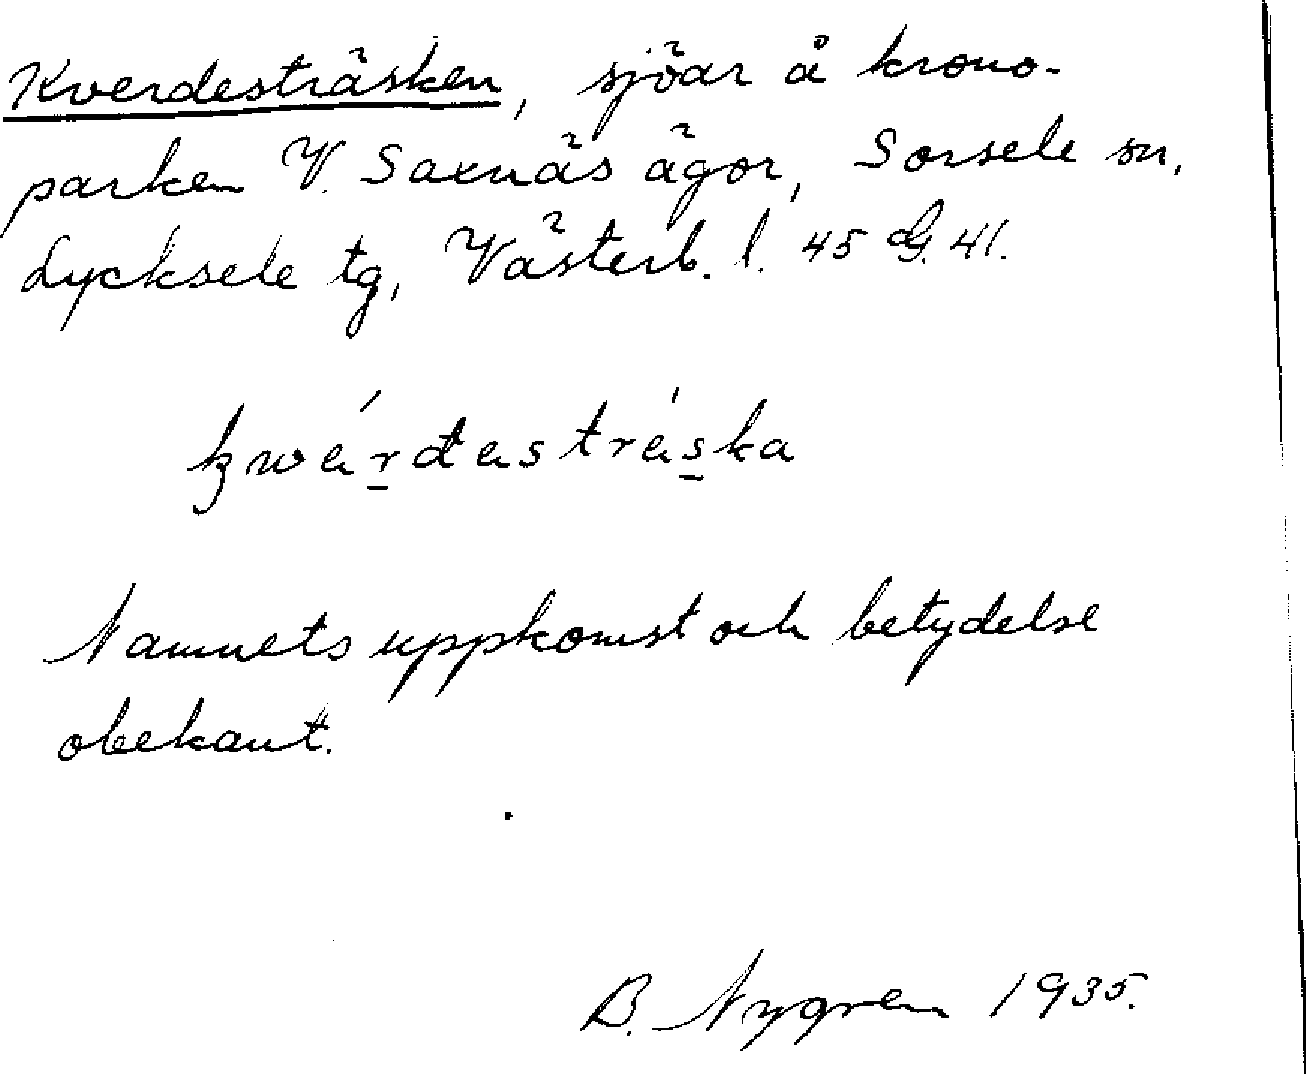 Kverdesträsken, sjöar å krono-
parken V. Saxnäs ägor, Sorsele sn,
Lycksele tg, Västerb. l. 45 G. 41.
kwérdestréska
Namnets uppkomst och betydelse
obekant.
B. Nygren 1935.